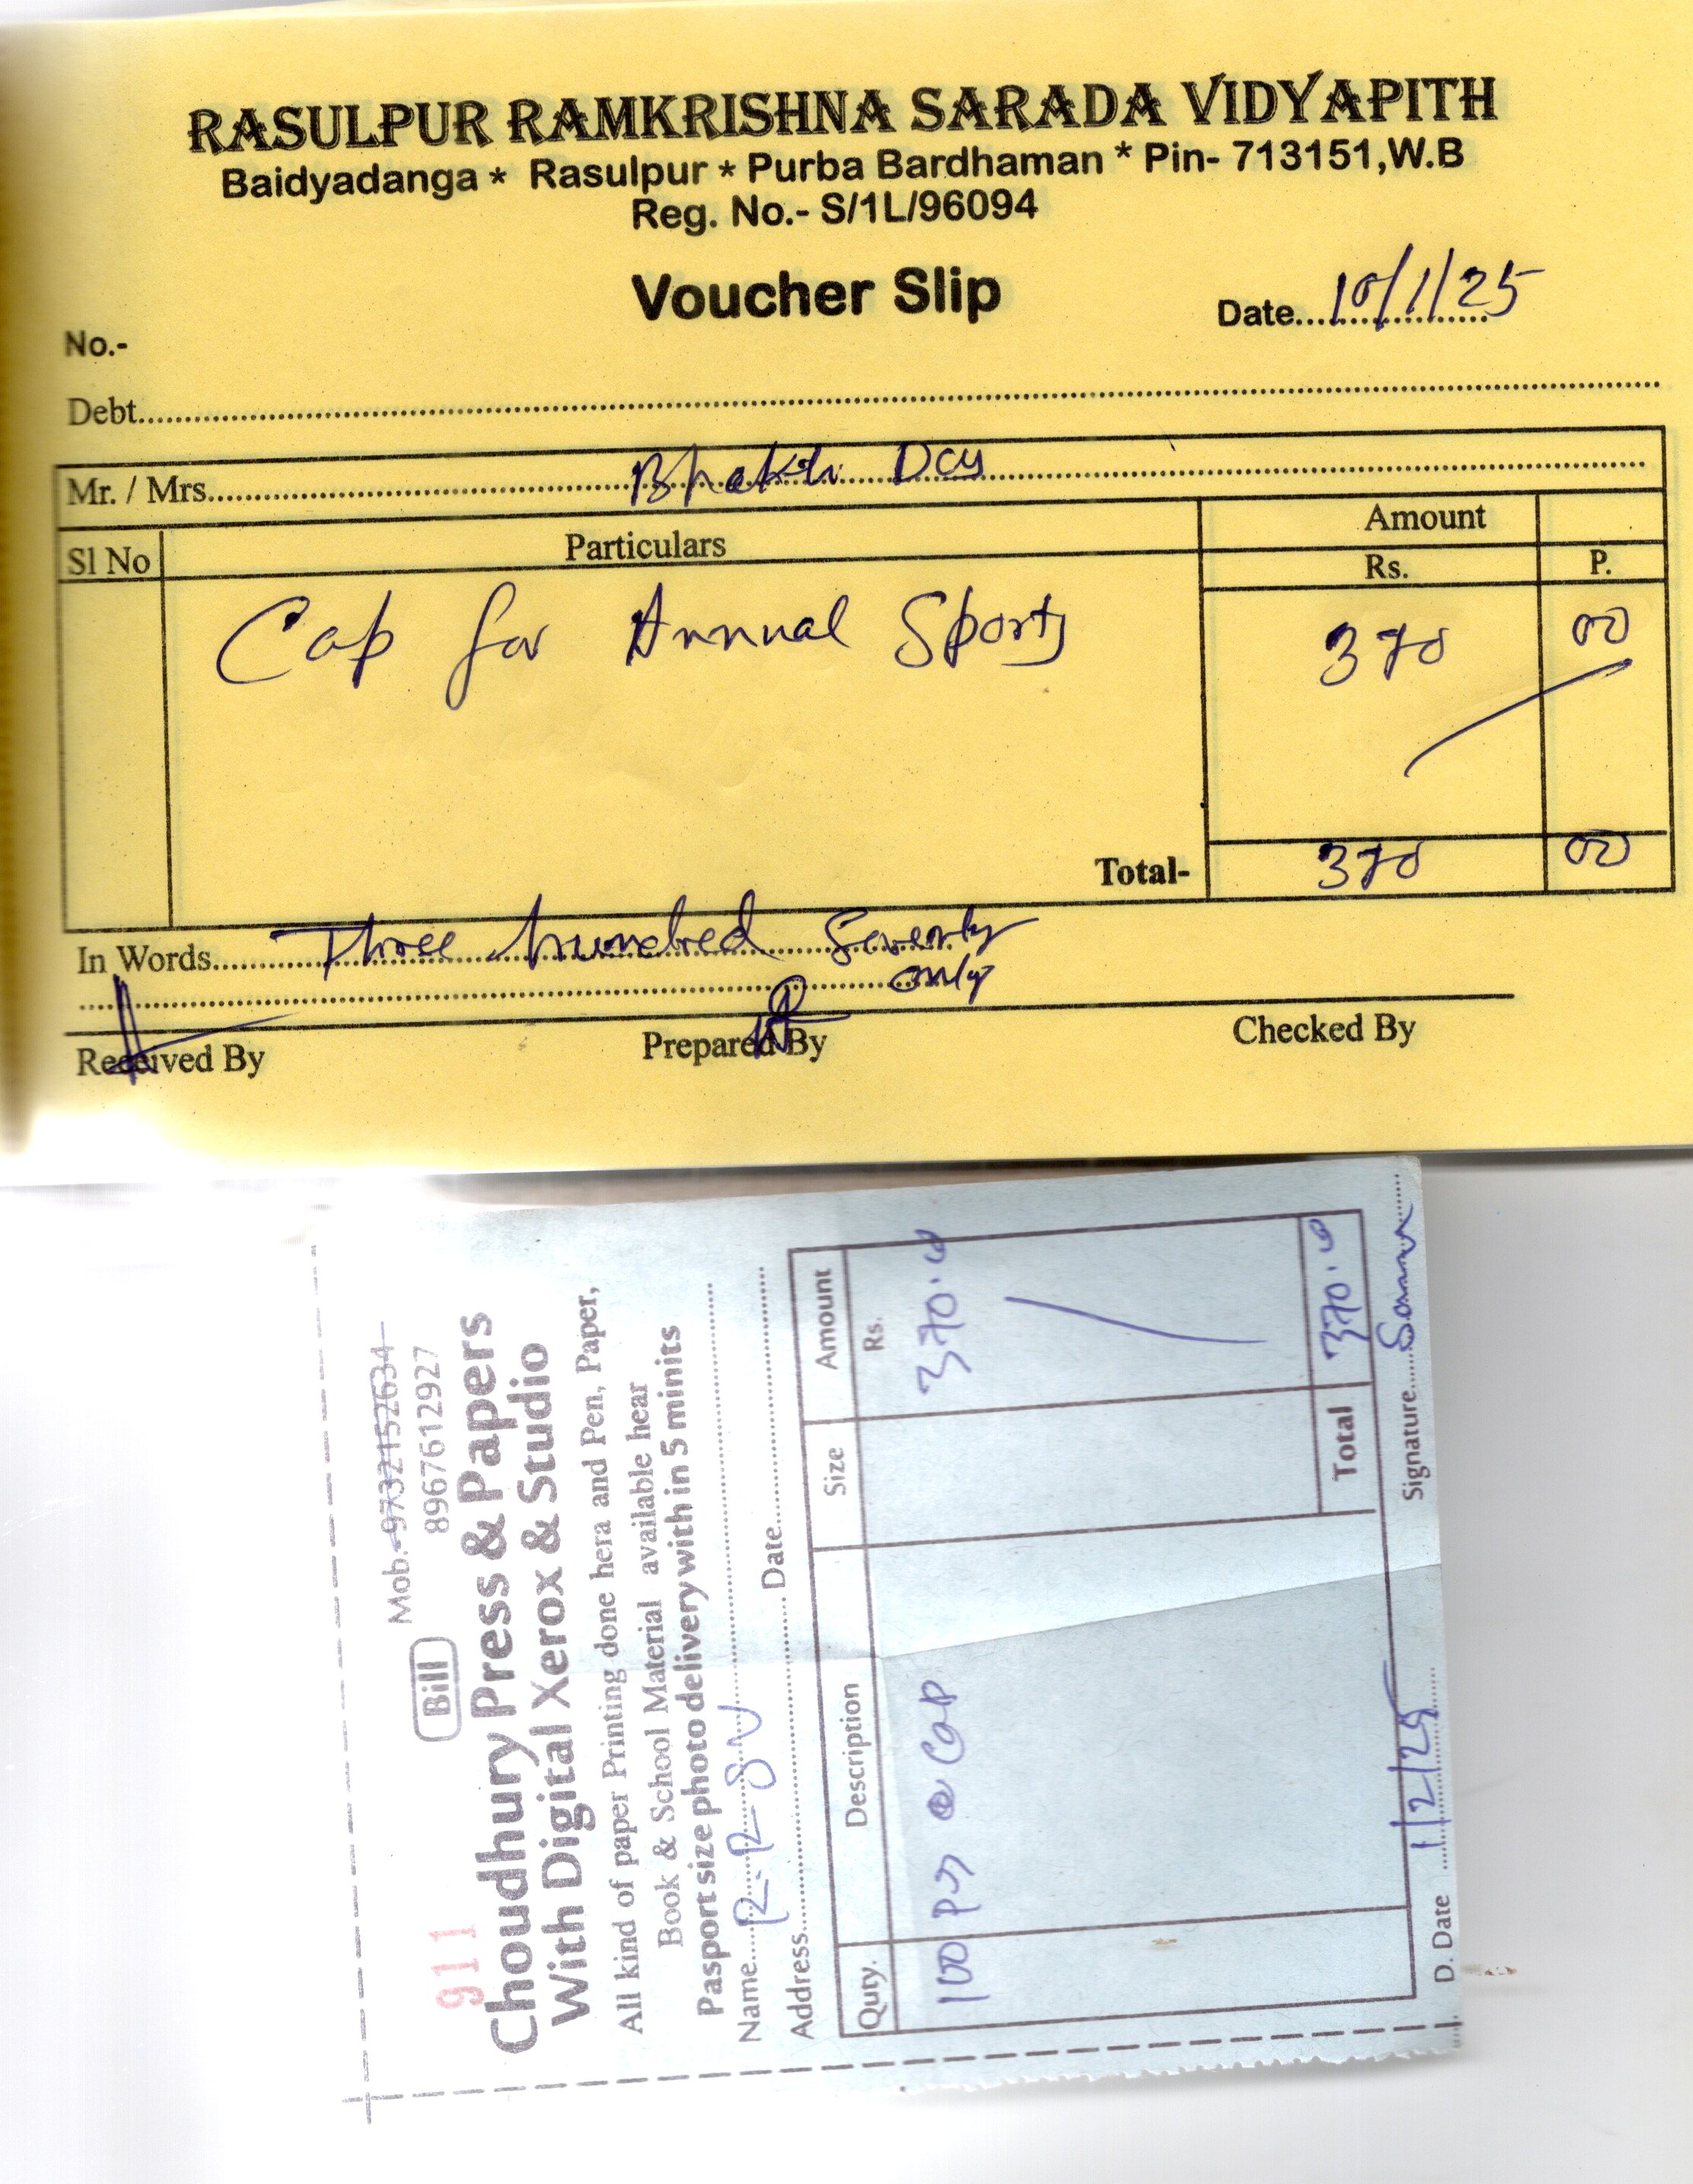 RASULPUR RAMKRISHNA SARADA VIDYAPITH
Baidyadanga * Rasulpur * Purba Bardhaman * Pin- 713151,W.B
Reg. No.- S/1L/96094
Voucher Slip
Date 10/1/25
No.-
Debt
Mr. / Mrs. Bhakti Dey
Sl No Particulars Amount
Rs. P.
Cap for Annual Sports 370 00
Total- 370 00
In Words Three hundred Seventy
only
Received By Prepared By Checked By
Mob. 9732152634
Bill 8967612927
911
Choudhury Press & Papers
With Digital Xerox & Studio
All kind of paper Printing done hera and Pen, Paper,
Book & School Material available hear
Pasport size photo delivery with in 5 minits
Name
Address Date
Quty. Description Size Amount
Rs.
100 Pcs Cap 370.00
Total 370.00
D. Date 1/2/25 Signature